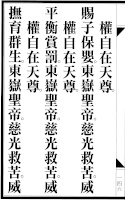 賜子保嬰東嶽聖帝慈光救苦威
權自在天尊
權自在天尊
平衡賞罰東嶽聖帝慈光救苦威
權自在天尊
撫育群生東嶽聖帝慈光救苦威
一四六